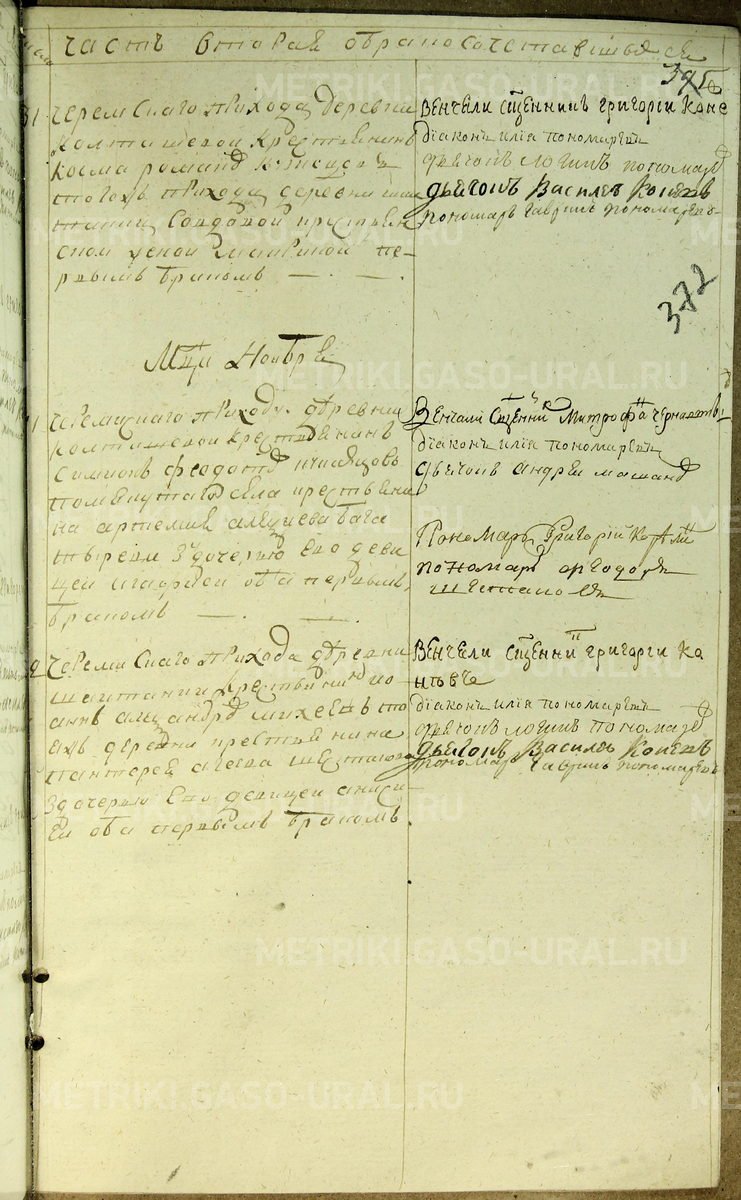 часть вторая обраносочетавшыяся
395
31 черемскаго прихода деревни
колташевой крестьянинъ
косма романов
тогожъ прихода деревни
вдовой крестьян
ской женой матриной пе-
рвымъ браком —
венчели сщенникъ григорiи Коне
дiаконъ илiя пономаревъ
дьячокъ логинъ пономарев
дьячокъ Василеи Коневъ
пономарь гаврилъ пономаревъ
372
Мцъ Ноябрь
1 черемскаго приходу деревни
колташевой крестьянинъ
симионъ феодотов
помянутаго села крестьяни
на артемия алеѯиева бага
тырева з дочерью его деви
цей агафией оба первымъ
бракомъ —
Венчали сщенникъ Митрофанъ
дiаконъ илiя пономаревъ
дьячокъ андреи
Пономарь Григорiй
пономарь феодоръ
Шестаковъ
9 черемскаго прихода деревни
шайтанки крестьянинъ ио
аннъ алеѯандров михеевъ то
яжъ деревни крестьянина
пантелея агеева шестакова
з дочерью его девицей аниси
ей оба первымъ бракомъ
Венчели сщенникъ григорiи Ко
невъ
дiаконъ илiя пономаревъ
дьячокъ логинъ пономарев
дьячокъ Василеи Коневъ
пономарь гаврилъ пономаревъ
METRIKI.GASO-URAL.RU